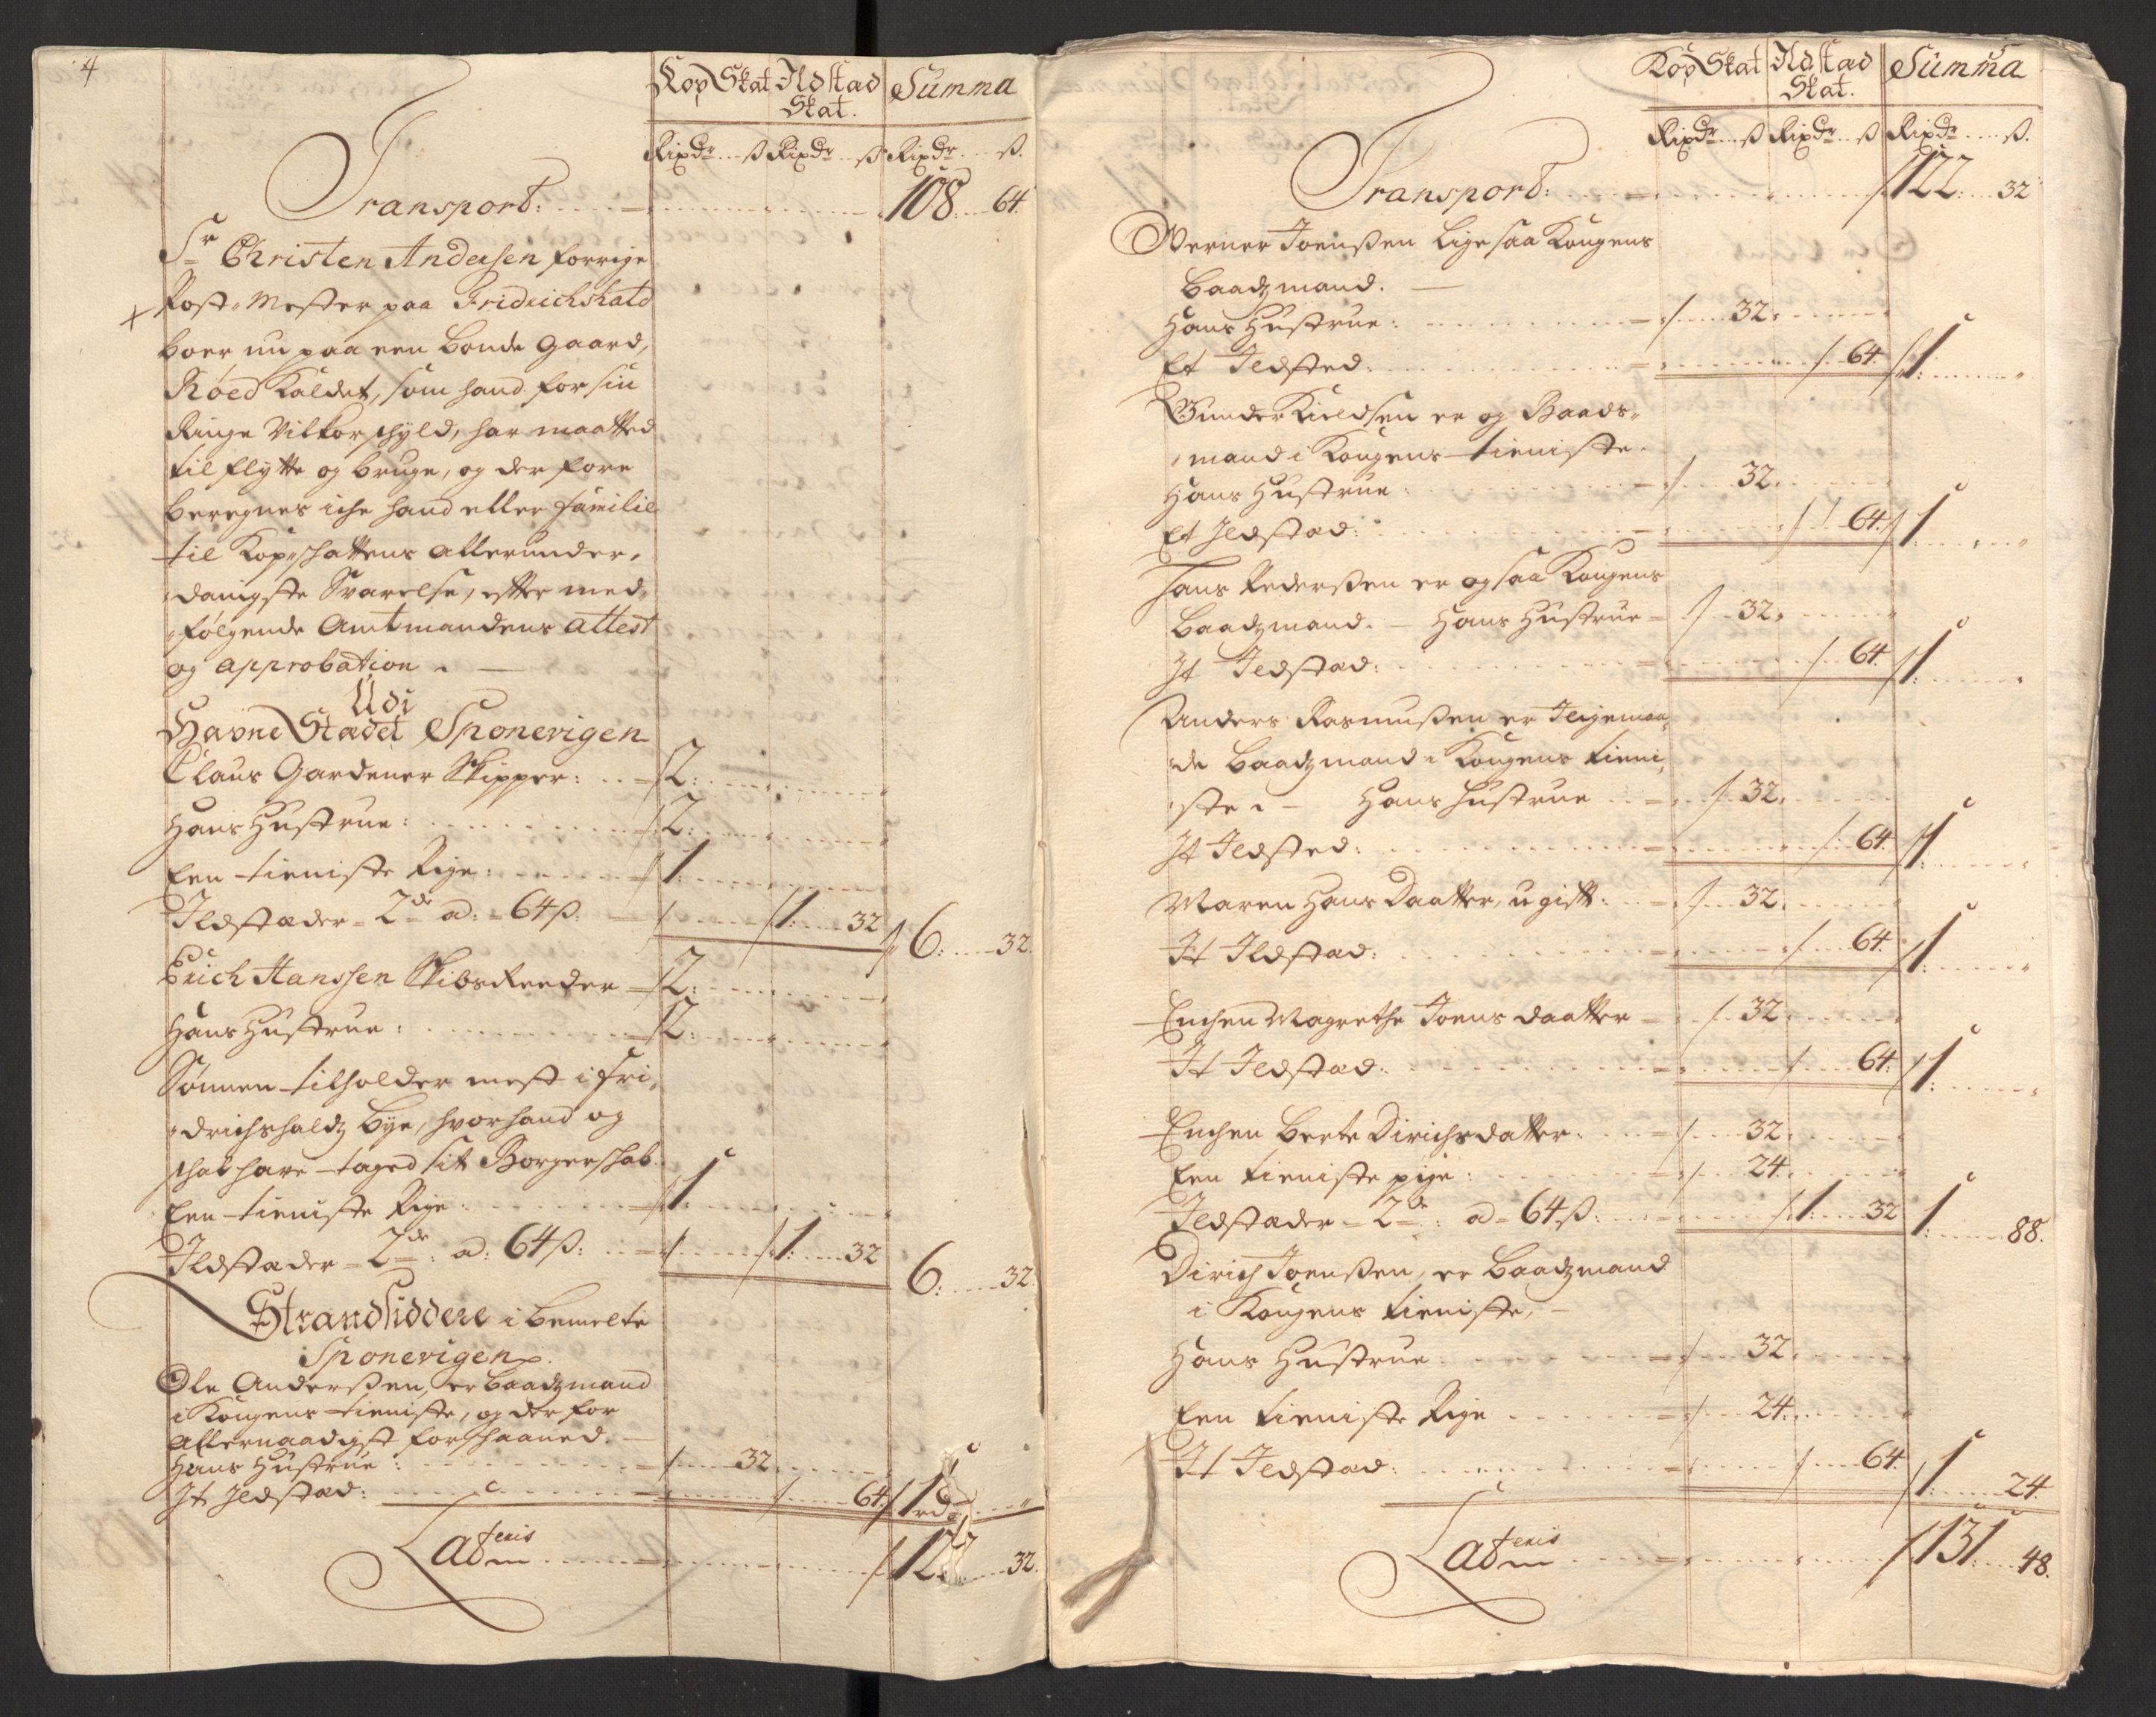 4
Kop Skat Ildstad Summa
Skat.
Rixdr ß Rixdr ß Rixdr ß.
Transport: 108 64.
Sr Christen Andersen forrige
+ Post-Mester paa Fridrichshald
boer nu paa een bonde gaard,
Røed kaldet, som hand for sin
Ringe Vilkor skyld, har maatted
til flytte og bruge, og der fore
beregnes iche hand eller familie
til Kopschattens allerunder-
danigste Svarelse, efter med-
følgende Amtmandens attest
og approbation.
Udi
Havne Stædet Sponevigen
Claus Gardener Skipper: 2:
Hans Hustrue: 2:
Een tieniste Pige: 1:
Ildstæder 2de a: 64 ß: 1: 32 6: 32.
Erich Hanssen Skibs Reeder 2:
Hans Hustrue: 2:
Sønnen tilholder mest i Fri-
drichshaldz bye, hvor hand og
skal have taged sit Borgerskab.
Een tieniste Pige: 1:
Ildstæder 2de: a: 64 ß: 1: 32 6: 32.
Strandsiddere i bemelte
Sponevigen.
Ole Anderssen, er baadzmand
i Kongens tieniste, og der for
allernaadigst forschaaned.
Hans Hustrue: 32
It Ildstæd: 64. 1 rd
Lateris 122: 32.
5
Kop Skat Ildstad Summa
Skat.
Rixdr ß Rixdr ß Rixdr ß.
Transport: 122: 32
Verner Joenssen lige saa Kongens
baadzmand.
Hans Hustrue: 32.
Et Ildsted: 64. 1:
Gunder Kieldsen er og Baads-
mand i Kongens tieniste.
Hans Hustrue: 32.
Et Ildstæd: 64. 1:
Hans Pederssen er og saa Kongens
baadzmand. Hans Hustrue 32.
It Ildstæd: 64. 1:
Anders Rasmussen er Ligemaa-
de baadzmand i Kongens tieni-
ste. Hans Hustrue 32.
It Ildsted: 64. 1:
Maren Hans Daatter, ugift: 32.
It Ildstæd: 64. 1:
Enchen Magrethe Joens daatter 32.
It Ildstæd: 64. 1:
Enchen Berte Dirichsdatter: 32.
Een tieniste pige: 24.
Ildstæder 2de: a 64 ß: 1: 32 1: 88.
Dirich Joenssen, er baadzmand
i Kongens tieniste,
Hans Hustrue: 32.
Een tieniste Pige 24.
It Ildstæd: 64. 1: 24.
Lateris 131: 48.